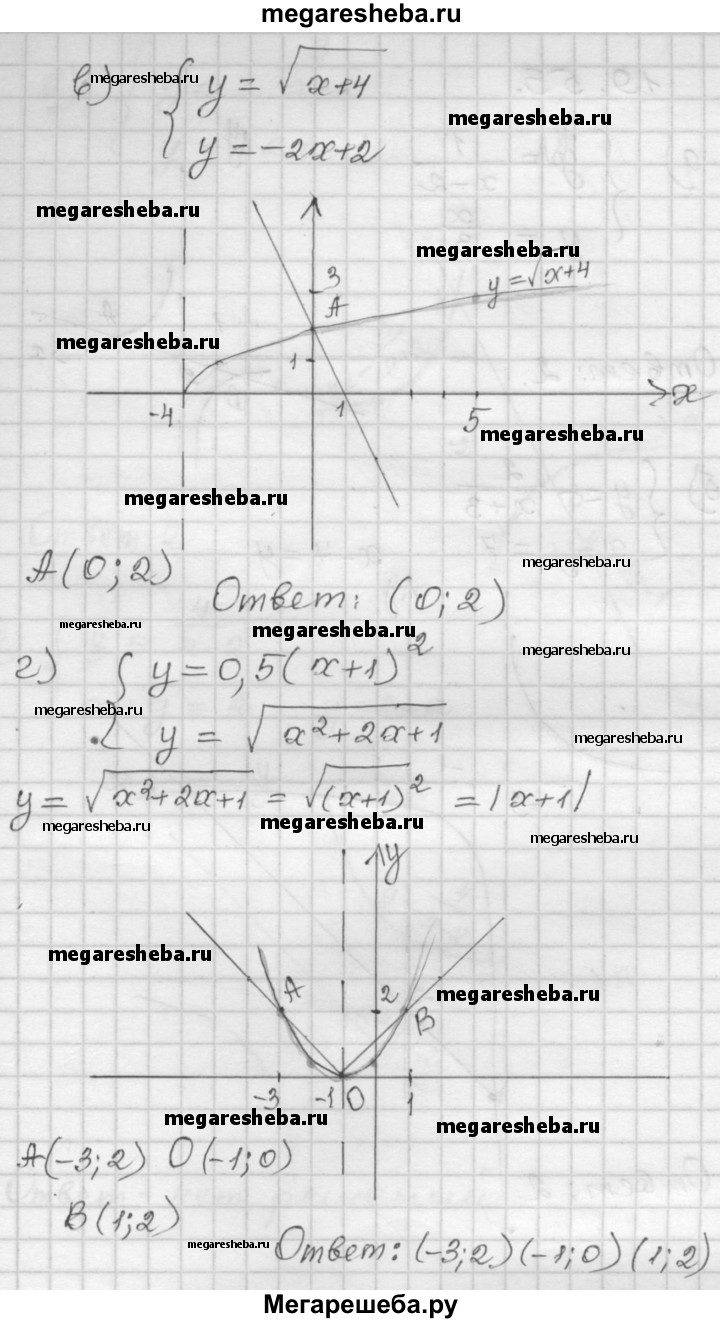 megaresheba.ru
в) megaresheba.ru { y = √x+4
megaresheba.ru
y = -2x+2
megaresheba.ru
megaresheba.ru
3 y = √x+4
A
megaresheba.ru
1
-4 1 5 x
megaresheba.ru
megaresheba.ru
A(0;2) megaresheba.ru
Ответ: (0;2)
megaresheba.ru megaresheba.ru
г) { y = 0,5(x+1)² megaresheba.ru
megaresheba.ru
y = √x²+2x+1 megaresheba.ru
y = √x²+2x+1 = √(x+1)² = |x+1|
megaresheba.ru megaresheba.ru megaresheba.ru
y
megaresheba.ru
A 2 megaresheba.ru
B
-3 -1 0 1
megaresheba.ru megaresheba.ru
A(-3;2) O(-1;0)
B(1;2)
megaresheba.ru Ответ: (-3;2) (-1;0) (1;2)
Мегарешеба.ру